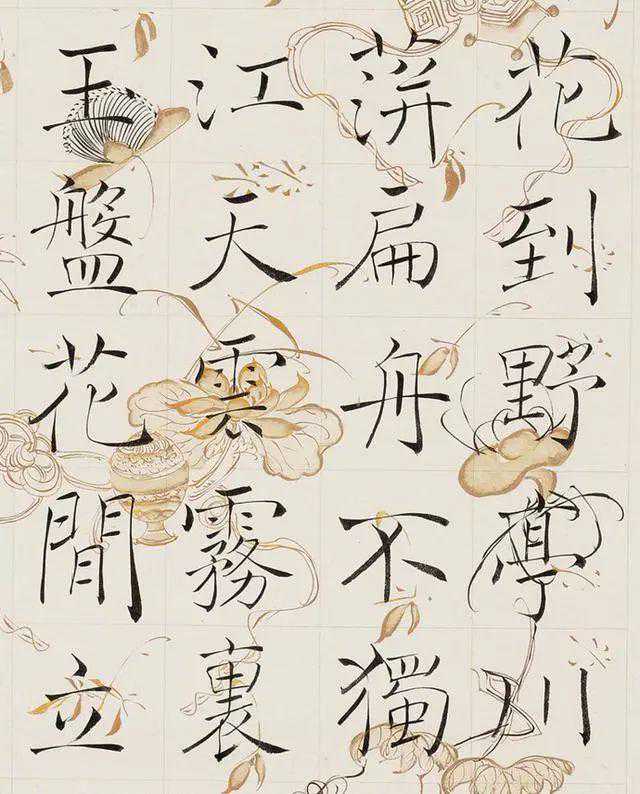 花到野萼川
蓱扁舟不獨
江天雲霧裏
玉盤花閒立